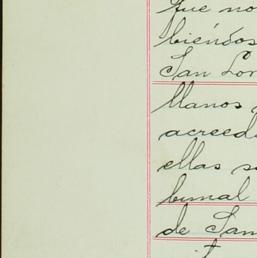 que no
biéndos
San Lor
llanos
acreed
ellas s
bunal
de San